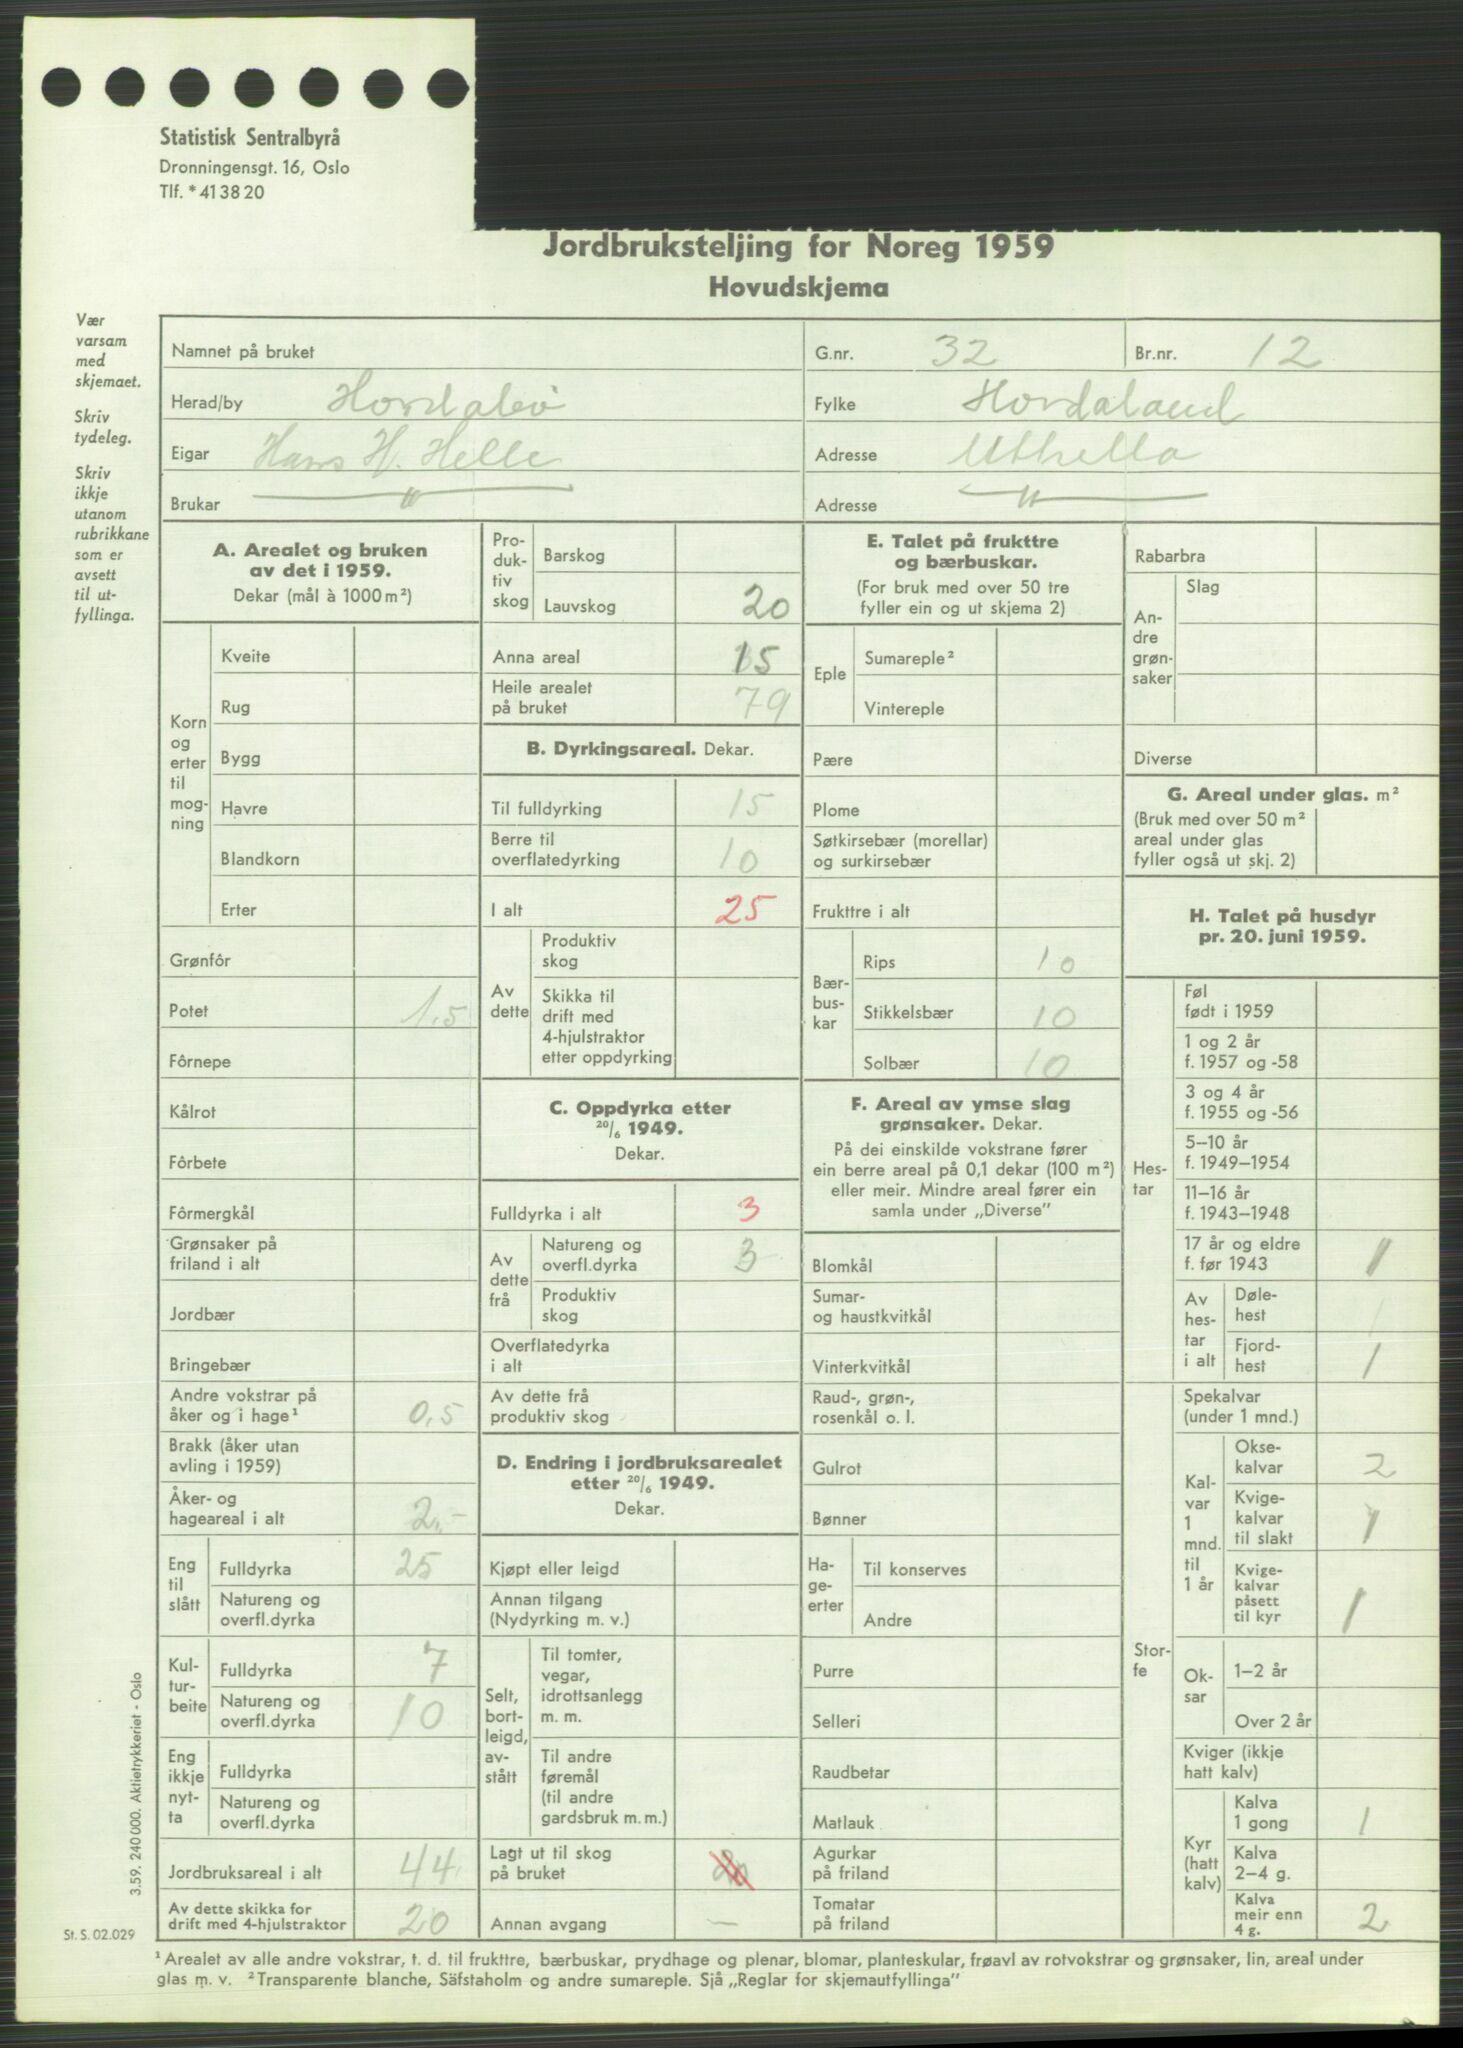 Statistisk Sentralbyrå
Dronningensgt. 16, Oslo
Tlf. *413820
Jordbruksteljing for Noreg 1959
Hovudskjema
Vær
varsam
med
skjemaet.
Skriv
tydeleg.
Skriv
ikkje
utanom
rubrikkane
som er
avsett
til ut-
fyllinga.
Namnet på bruket
G.nr. 32 Br.nr. 12
Herad/by Hordabø Fylke Hordaland
Eigar Hans H. Helle Adresse Uthella
Brukar — " — Adresse — " —
A. Arealet og bruken
av det i 1959.
Dekar (mål à 1000 m²)
Korn
og
erter
til
mog-
ning
Kveite
Rug
Bygg
Havre
Blandkorn
Erter
Grønfôr
Potet 1,5
Fôrnepe
Kålrot
Fôrbete
Fôrmergkål
Grønsaker på
friland i alt
Jordbær
Bringebær
Andre vokstrar på
åker og i hage¹ 0,5
Brakk (åker utan
avling i 1959)
Åker- og
hageareal i alt 2,-
Eng
til
slått
Fulldyrka 25
Natureng og
overfl.dyrka
Kul-
tur-
beite
Fulldyrka 7
Natureng og
overfl.dyrka 10
Eng
ikkje
nyt-
ta
Fulldyrka
Natureng og
overfl.dyrka
Jordbruksareal i alt 44
Av dette skikka for
drift med 4-hjulstraktor 20
Pro-
duk-
tiv
skog
Barskog
Lauvskog 20
Anna areal 15
Heile arealet
på bruket 79
B. Dyrkingsareal. Dekar.
Til fulldyrking 15
Berre til
overflatedyrking 10
I alt 25
Av
dette
Produktiv
skog
Skikka til
drift med
4-hjulstraktor
etter oppdyrking
C. Oppdyrka etter
20/6 1949.
Dekar.
Fulldyrka i alt 3
Av
dette
frå
Natureng og
overfl.dyrka 3
Produktiv
skog
Overflatedyrka
i alt
Av dette frå
produktiv skog
D. Endring i jordbruksarealet
etter 20/6 1949.
Dekar.
Kjøpt eller leigd
Annan tilgang
(Nydyrking m. v.)
Selt,
bort-
leigd,
av-
stått
Til tomter,
vegar,
idrottsanlegg
m. m.
Til andre
føremål
(til andre
gardsbruk m. m.)
Lagt ut til skog
på bruket
Annan avgang —
E. Talet på frukttre
og bærbuskar.
(For bruk med over 50 tre
fyller ein og ut skjema 2)
Eple
Sumareple²
Vintereple
Pære
Plome
Søtkirsebær (morellar)
og surkirsebær
Frukttre i alt
Bær-
bus-
kar
Rips 10
Stikkelsbær 10
Solbær 10
F. Areal av ymse slag
grønsaker. Dekar.
På dei einskilde vokstrane fører
ein berre areal på 0,1 dekar (100 m²)
eller meir. Mindre areal fører ein
samla under „Diverse”
Blomkål
Sumar-
og haustkvitkål
Vinterkvitkål
Raud-, grøn-,
rosenkål o. l.
Gulrot
Bønner
Ha-
ge-
erter
Til konserves
Andre
Purre
Selleri
Raudbetar
Matlauk
Agurkar
på friland
Tomatar
på friland
Rabarbra
An-
dre
grøn-
saker
Slag
Diverse
G. Areal under glas. m²
(Bruk med over 50 m²
areal under glas
fyller også ut skj. 2)
H. Talet på husdyr
pr. 20. juni 1959.
Hes-
tar
Føl
født i 1959
1 og 2 år
f. 1957 og -58
3 og 4 år
f. 1955 og -56
5–10 år
f. 1949–1954
11–16 år
f. 1943–1948
17 år og eldre
f. før 1943 1
Av
hes-
tar
i alt
Døle-
hest
Fjord-
hest 1
Stor-
fe
Spekalvar
(under 1 mnd.)
Kal-
var
1
mnd.
til
1 år
Okse-
kalvar 2
Kvige-
kalvar
til slakt 1
Kvige-
kalvar
påsett
til kyr 1
Ok-
sar
1–2 år
Over 2 år
Kviger (ikkje
hatt kalv)
Kyr
(hatt
kalv)
Kalva
1 gong 1
Kalva
2–4 g.
Kalva
meir enn
4 g. 2
3.59. 240 000. Aktietrykkeriet - Oslo
St. S. 02.029
¹ Arealet av alle andre vokstrar, t. d. til frukttre, bærbuskar, prydhage og plenar, blomar, planteskular, frøavl av rotvokstrar og grønsaker, lin, areal under
glas m. v. ² Transparente blanche, Säfstaholm og andre sumareple. Sjå „Reglar for skjemautfyllinga”